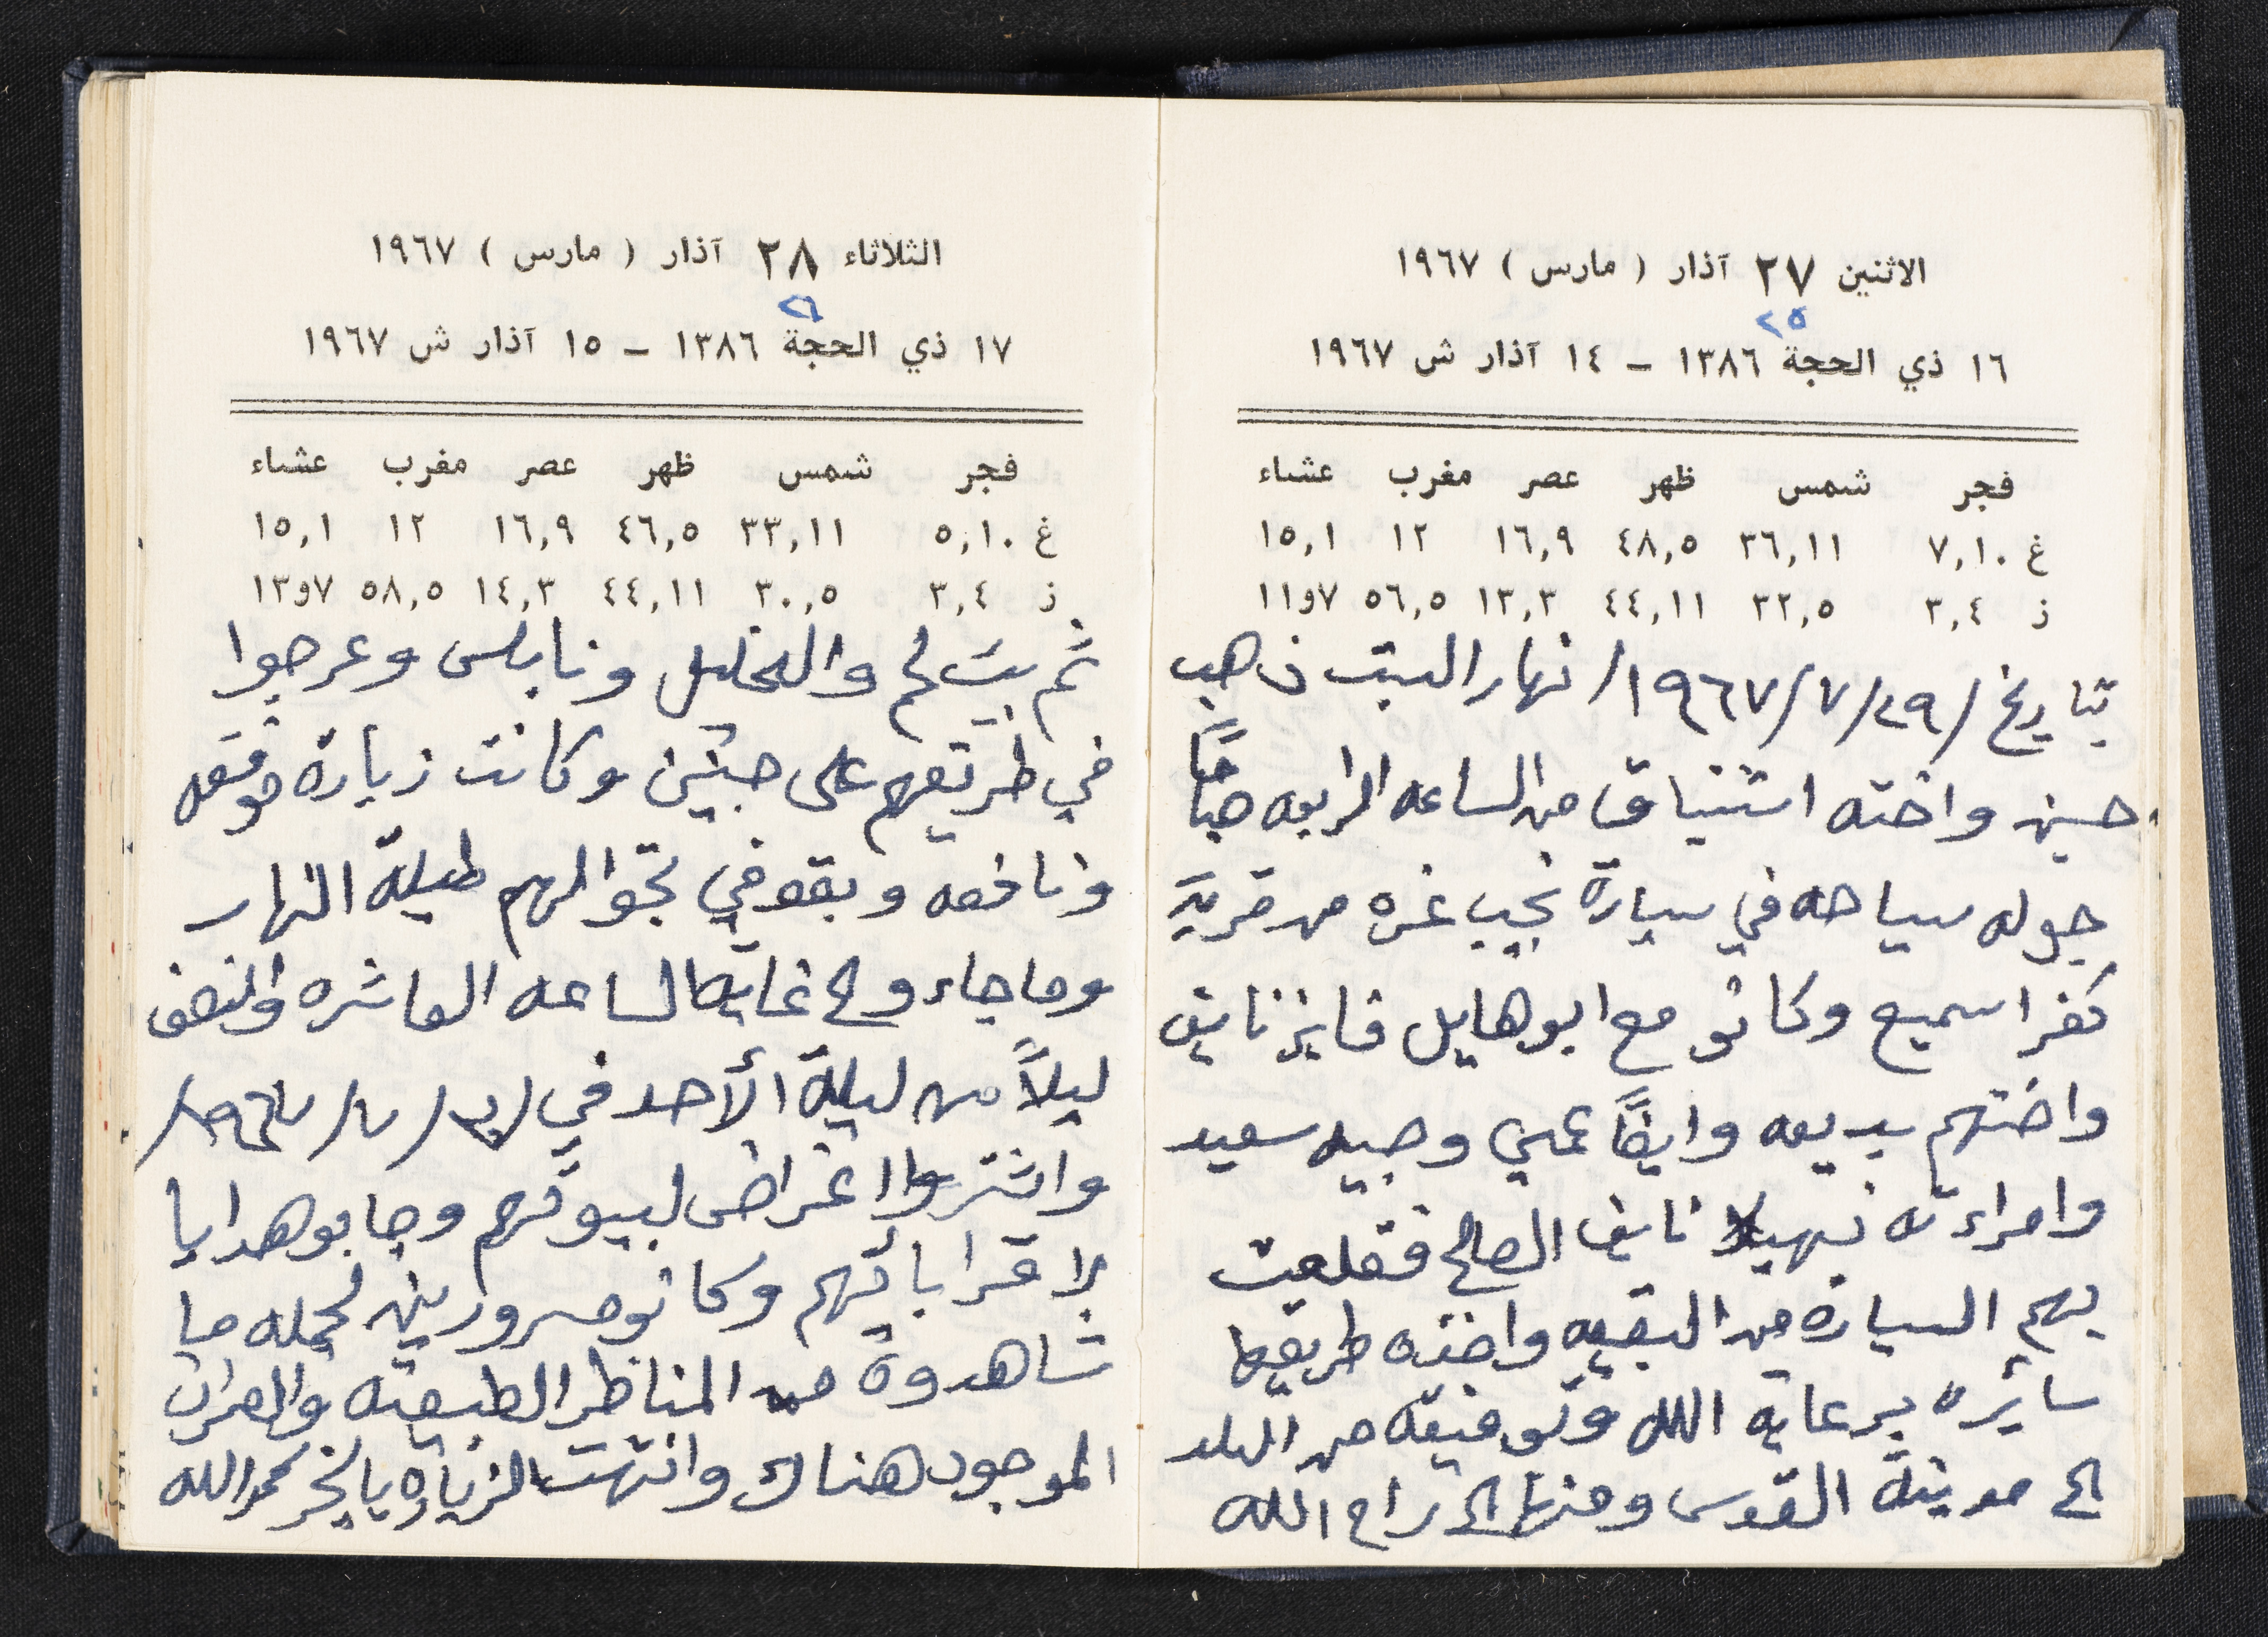 الاثنين ٢٧ آذار ( مارس ) ١٩٦٧
٢٥
١٦ ذي الحجة ١٣٨٦ – ١٤ آذار ش ١٩٦٧
فجر شمس ظهر عصر مغرب عشاء
غ ٧,١٠ ٣٦,١١ ٤٨,٥ ١٦,٩ ١٢ ١٥,١
ز ٣,٤ ٣٢,٥ ٤٤,١١ ١٣,٣ ٥٦,٥ ٧و١١
بتاريخ /٢٩/٧/١٩٦٧/ نهار السبت ذهب
حسين واخته اشتياق من الساعه الرابعه صباحًا
جوله سياحه في سيارة نجيب غره من قرية
كفر اسميع وكانو مع ابو هايل فايز نايف
واختهم بديعه وايضًا عمي وجيه سعيد
وامراءته نبهيلا نايف الصالح فقلعت
بهم السياره من البقيعه واخذه طريقها
سائره برعاية الله وتوفيقه من البلد
الى مدينة القدس ومنها الى رام الله
الثلاثاء ٢٨ آذار ( مارس ) ١٩٦٧
٢٦
١٧ ذي الحجة ١٣٨٦ – ١٥ آذار ش ١٩٦٧
فجر شمس ظهر عصر مغرب عشاء
غ ٥,١٠ ٣٣,١١ ٤٦,٥ ١٦,٩ ١٢ ١٥,١
ز ٣,٤ ٣٠,٥ ٤٤,١١ ١٤,٣ ٥٨,٥ ٧و١٣
ثم بيت لحم والخليل ونابلس وعرجوا
في طريقهم على جنين وكانت زيارة موفقه
ونافعه وبقو في تجوالهم طيلة النهار
وما جاءو الى غاية الساعه العاشره والنصف
ليلاً من ليلة الأحد في /٣٠/٧/١٩٦٧/
واشتروا اغراض لبيوتهم وجابو هدايا
لاقراباتهم وكانو مسرورين لجمله ما
شاهدوة من المناظر الطبيعيه والعمران
الموجود هناك وانتهت الزياره بالخير نحمد الله